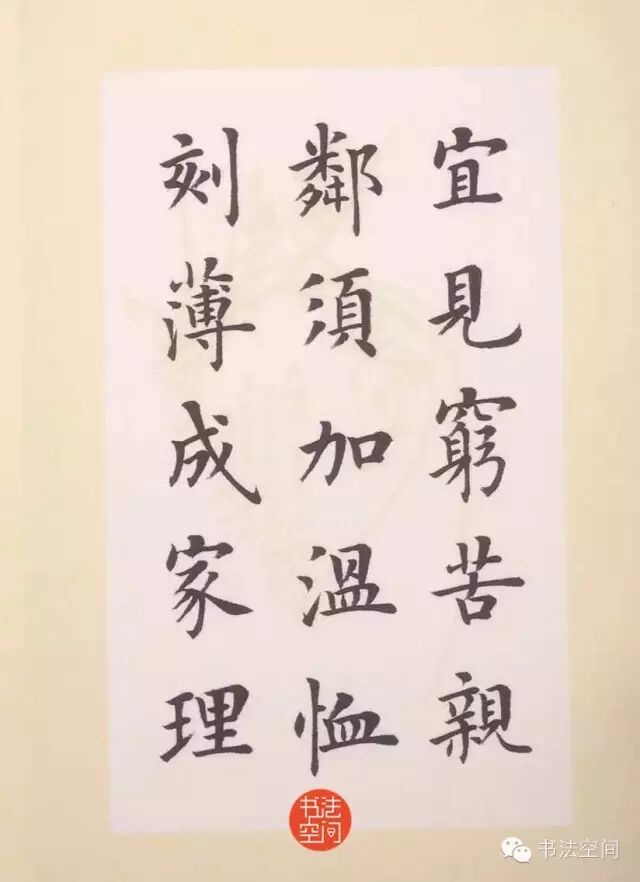 宜見窮苦親
鄰須加溫恤
刻薄成家理
书法空间
书法空间